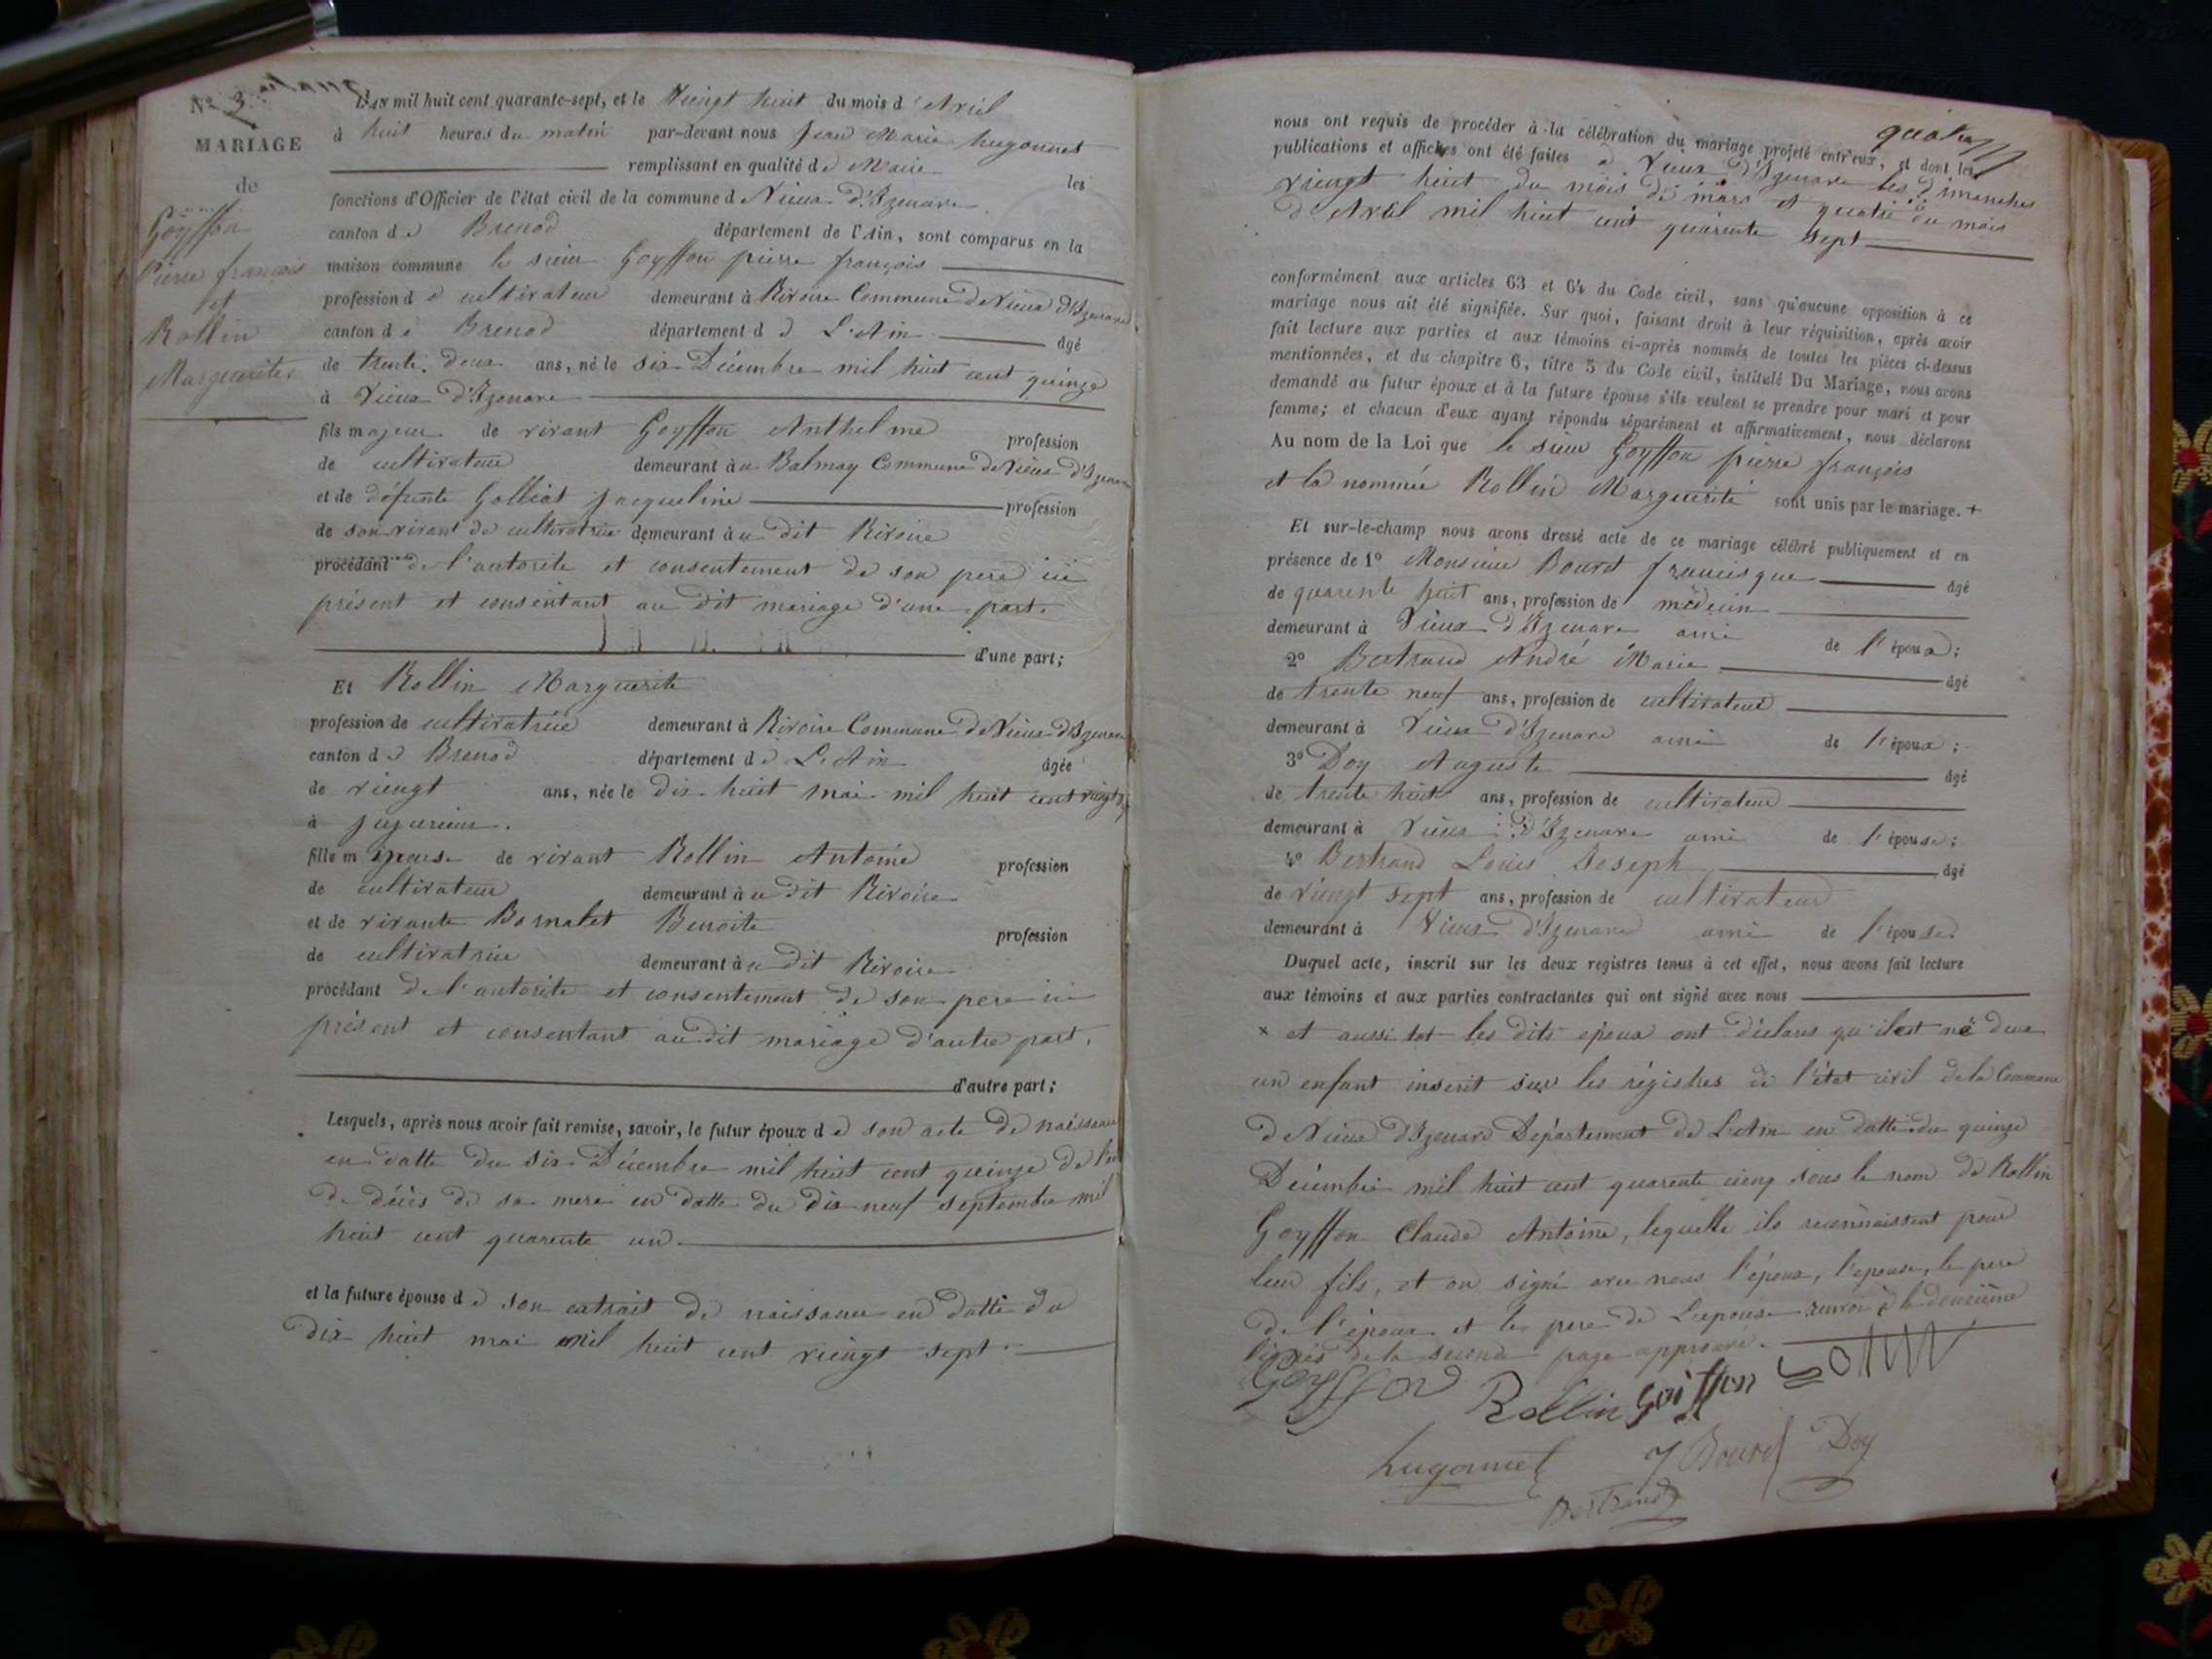 Nº 3
MARIAGE
de
Goyffon
Pierre françois
et
Rollin
Marguerite
L'AN mil huit cent quarante-sept, et le Viengt huit du mois d'Avril
à huit heures du matin par-devant nous Jean Marie hugonnet
remplissant en qualité de Maire les
fonctions d'Officier de l'état civil de la commune d Vieux d'Izenave
canton de Brenod département de l'Ain, sont comparus en la
maison commune le sieur Goyffon pierre françois
profession de cultivateur demeurant à Rivoire Commune de Vieux d'Izenave
canton de Brenod département de L'Ain âgé
de trente deux ans, né le six Décembre mil huit cent quinze
à Vieux d'Izenave
fils majeur de vivant Goyffon Anthelme profession
de cultivateur demeurant àu Balmay Commune de Vieux d'Izenave
et de défunte Golliat Jacqueline profession
de son vivant de cultivatrice demeurant àu dit Rivoire
procédant de l'autorite et consentement de son pere ici
présent et consentant au dit mariage d'une part.
d'une part;
Et Rollin Marguerite
profession de cultivatrice demeurant à Rivoire Commune de Vieux d'Izenave
canton de Brenod département de L'Ain âgée
de viengt ans, née le dix huit mai mil huit cent vingt
à jujurieux.
fille m de vivant Rollin Antoine profession
de cultivateur demeurant àu dit Rivoire
et de vivante Bornatet Benoite profession
de cultivatrice demeurant àu dit Rivoire
procédant de l'autorite et consentement de son pere ici
présent et consentant au dit mariage d'autre part.
d'autre part;
Lesquels, après nous avoir fait remise, savoir, le futur époux de son acte de naissance
en datte du six Décembre mil huit cent quinze de
de décès de sa mere en datte du dix neuf septembre mil
huit cent quarente un
et la future épouse de son extrait de naissance en datte du
dix huit mai mil huit cent viengt sept.
quatre
nous ont requis de procéder à la célébration du mariage projeté entr'eux, et dont les
publications et affiches ont été faites à Vieux d'Izenave les dimanches
viengt huit du mois de mars et quatre du mois
d'Avril mil huit cent quarente sept
conformément aux articles 63 et 64 du Code civil, sans qu'aucune opposition à ce
mariage nous ait été signifiée. Sur quoi, faisant droit à leur réquisition, après avoir
fait lecture aux parties et aux témoins ci-après nommés de toutes les pièces ci-dessus
mentionnées, et du chapitre 6, titre 5 du Code civil, intitulé Du Mariage, nous avons
demandé au futur époux et à la future épouse s'ils veulent se prendre pour mari et pour
femme; et chacun d'eux ayant répondu séparément et affirmativement, nous déclarons
Au nom de la Loi que le sieur Goyffon pierre françois
et la nommée Rollin Marguerite sont unis par le mariage. +
Et sur-le-champ nous avons dressé acte de ce mariage célébré publiquement et en
présence de 1º Monsieur Bourd françisque âgé
de quarente huit ans, profession de médecin
demeurant à Vieux d'Izenave ami de l'époux;
2º Bertrand André Marie âgé
de trente neuf ans, profession de cultivateur
demeurant à Vieux d'Izenave ami de l'époux;
3º Doy Auguste âgé
de trente huit ans, profession de cultivateur
demeurant à Vieux d'Izenave ami de l'épouse;
4º Bertrand Louis Joseph âgé
de viengt sept ans, profession de cultivateur
demeurant à Vieux d'Izenave ami de l'épouse.
Duquel acte, inscrit sur les deux registres tenus à cet effet, nous avons fait lecture
aux témoins et aux parties contractantes qui ont signé avec nous
x et aussi tot les dits epoux ont déclaré qu'il est né deux
un enfant inscrit sur les régistres de l'état civil de la Commune
de Vieux d'Izenave Département de L'Ain en datte du quinze
Décembre mil huit cent quarente cinq sous le nom de Rollin
Goyffon Claude Antoine, lequelle ils reconnaissent pour
leur fils, et on signé avec nous l'époux, l'epouse, le pere
de l'époux et le pere de L'epouse renvoi à la deuxième
lignes de la seconde page approuvé.
Goyffon Rollin Goiffon
hugonnet J Bourd Doy
Bertrand